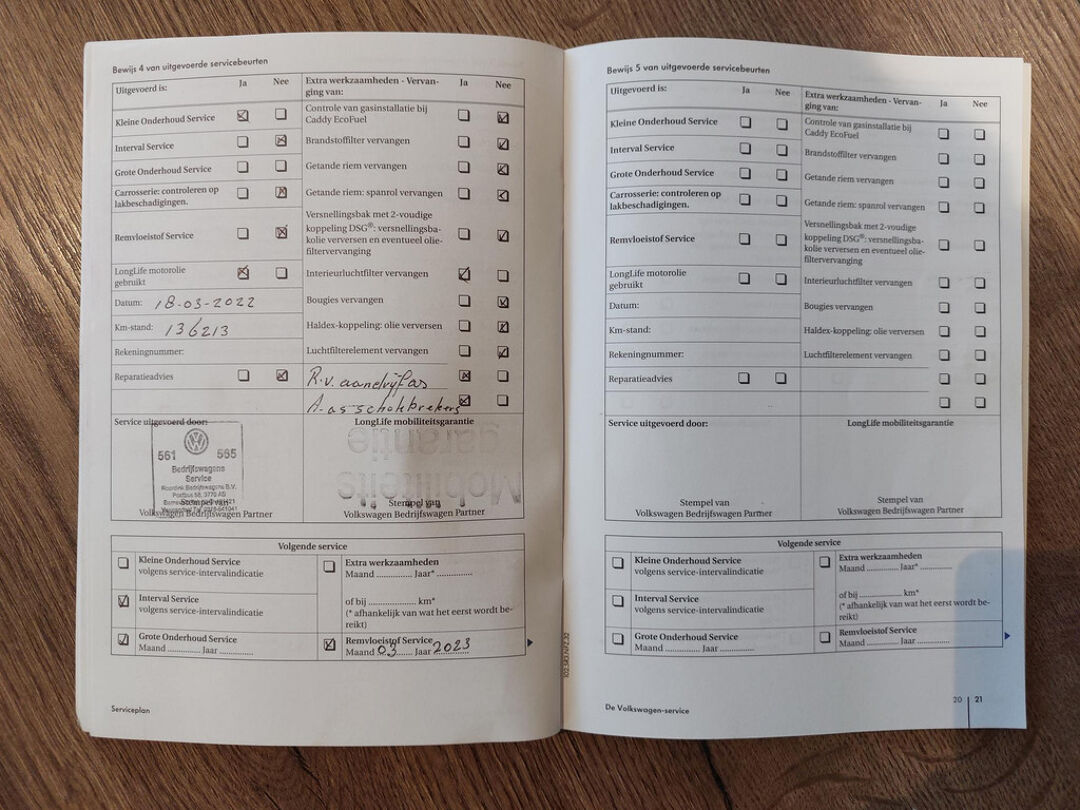 Bewijs 4 van uitgevoerde servicebeurten
Uitgevoerd is:
Ja
Nee
Extra werkzaamheden - Vervan-
ging van:
Ja
Nee
Kleine Onderhoud Service
Controle van gasinstallatie bij
Caddy EcoFuel
Interval Service
Brandstoffilter vervangen
Grote Onderhoud Service
Getande riem vervangen
Carrosserie: controleren op
lakbeschadigingen.
Getande riem: spanrol vervangen
Remvloeistof Service
Versnellingsbak met 2-voudige
koppeling DSG®: versnellingsba-
kolie verversen en eventueel olie-
filtervervanging
LongLife motorolie
gebruikt
Interieurluchtfilter vervangen
Datum: 18-03-2022
Bougies vervangen
Km-stand: 136213
Haldex-koppeling: olie verversen
Rekeningnummer:
Luchtfilterelement vervangen
Reparatieadvies
R.v. aandrijfas
A-as schokbrekers
Service uitgevoerd door:
LongLife mobiliteitsgarantie
561 565
Bedrijfswagens
Service
Noordink Bedrijfswagens B.V.
Postbus 58, 3770 AG
garantie
Mobiliteits
Stempel van
Volkswagen Bedrijfswagen Partner
Stempel van
Volkswagen Bedrijfswagen Partner
Volgende service
Kleine Onderhoud Service
volgens service-intervalindicatie
Extra werkzaamheden
Maand .............. Jaar* ..............
Interval Service
volgens service-intervalindicatie
of bij .................. km*
(* afhankelijk van wat het eerst wordt be-
reikt)
Grote Onderhoud Service
Maand ............. Jaar .............
Remvloeistof Service
Maand 03 Jaar 2023
Serviceplan
Bewijs 5 van uitgevoerde servicebeurten
Uitgevoerd is:
Ja
Nee
Extra werkzaamheden - Vervan-
ging van:
Ja
Nee
Kleine Onderhoud Service
Controle van gasinstallatie bij
Caddy EcoFuel
Interval Service
Brandstoffilter vervangen
Grote Onderhoud Service
Getande riem vervangen
Carrosserie: controleren op
lakbeschadigingen.
Getande riem: spanrol vervangen
Remvloeistof Service
Versnellingsbak met 2-voudige
koppeling DSG®: versnellingsba-
kolie verversen en eventueel olie-
filtervervanging
LongLife motorolie
gebruikt
Interieurluchtfilter vervangen
Datum:
Bougies vervangen
Km-stand:
Haldex-koppeling: olie verversen
Rekeningnummer:
Luchtfilterelement vervangen
Reparatieadvies
Service uitgevoerd door:
LongLife mobiliteitsgarantie
Stempel van
Volkswagen Bedrijfswagen Partner
Stempel van
Volkswagen Bedrijfswagen Partner
Volgende service
Kleine Onderhoud Service
volgens service-intervalindicatie
Extra werkzaamheden
Maand ............ Jaar* ............
Interval Service
volgens service-intervalindicatie
of bij ................ km*
(* afhankelijk van wat het eerst wordt be-
reikt)
Grote Onderhoud Service
Maand ............. Jaar .............
Remvloeistof Service
Maand ............ Jaar ............
De Volkswagen-service
20 21